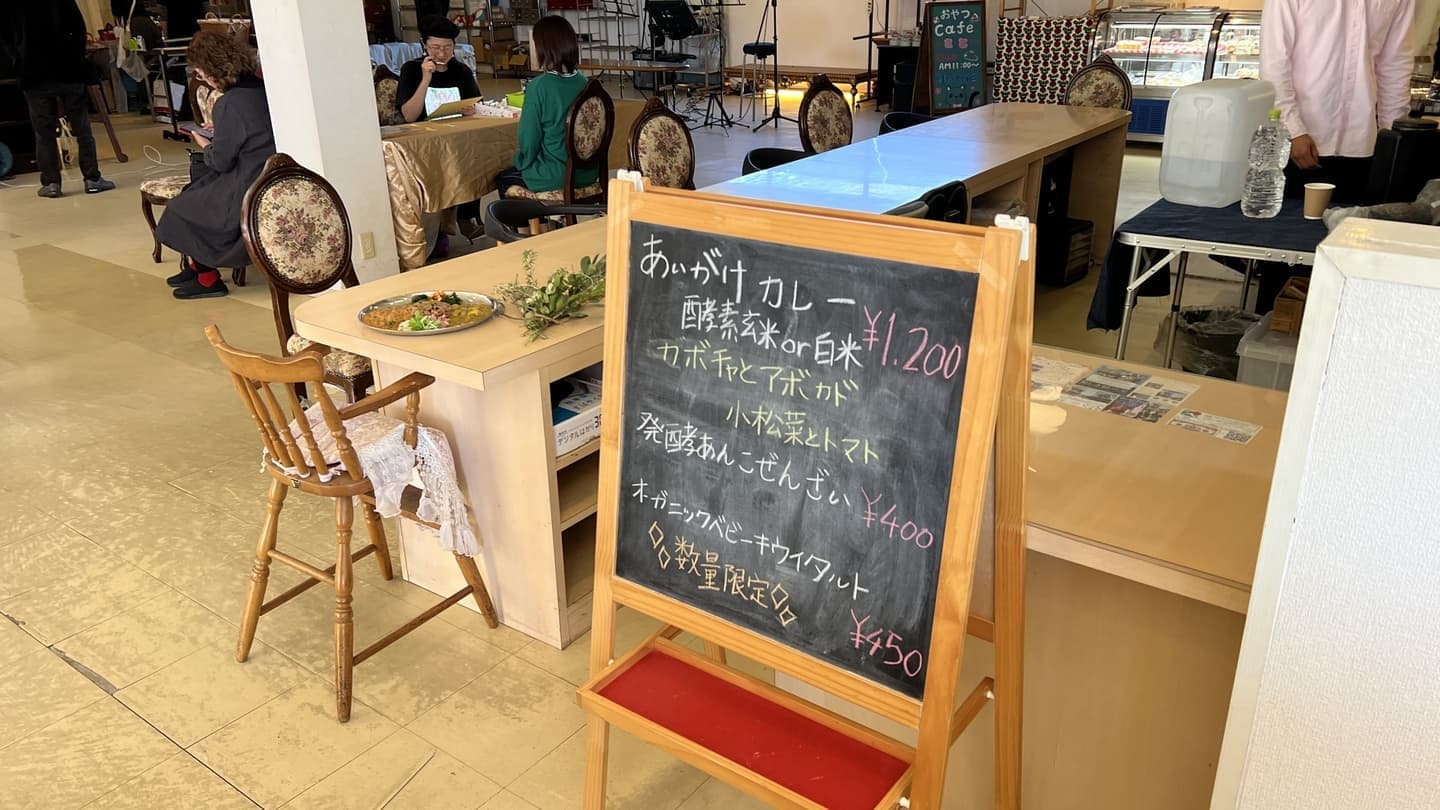 おやつ
Cafe
AM11:00〜
あいがけカレー
酵素玄米or白米 ¥1.200
カボチャとアボカド
小松菜とトマト
発酵あんこぜんざい
¥400
オーガニックベビーキウイタルト
数量限定
¥450
デジタルはかり